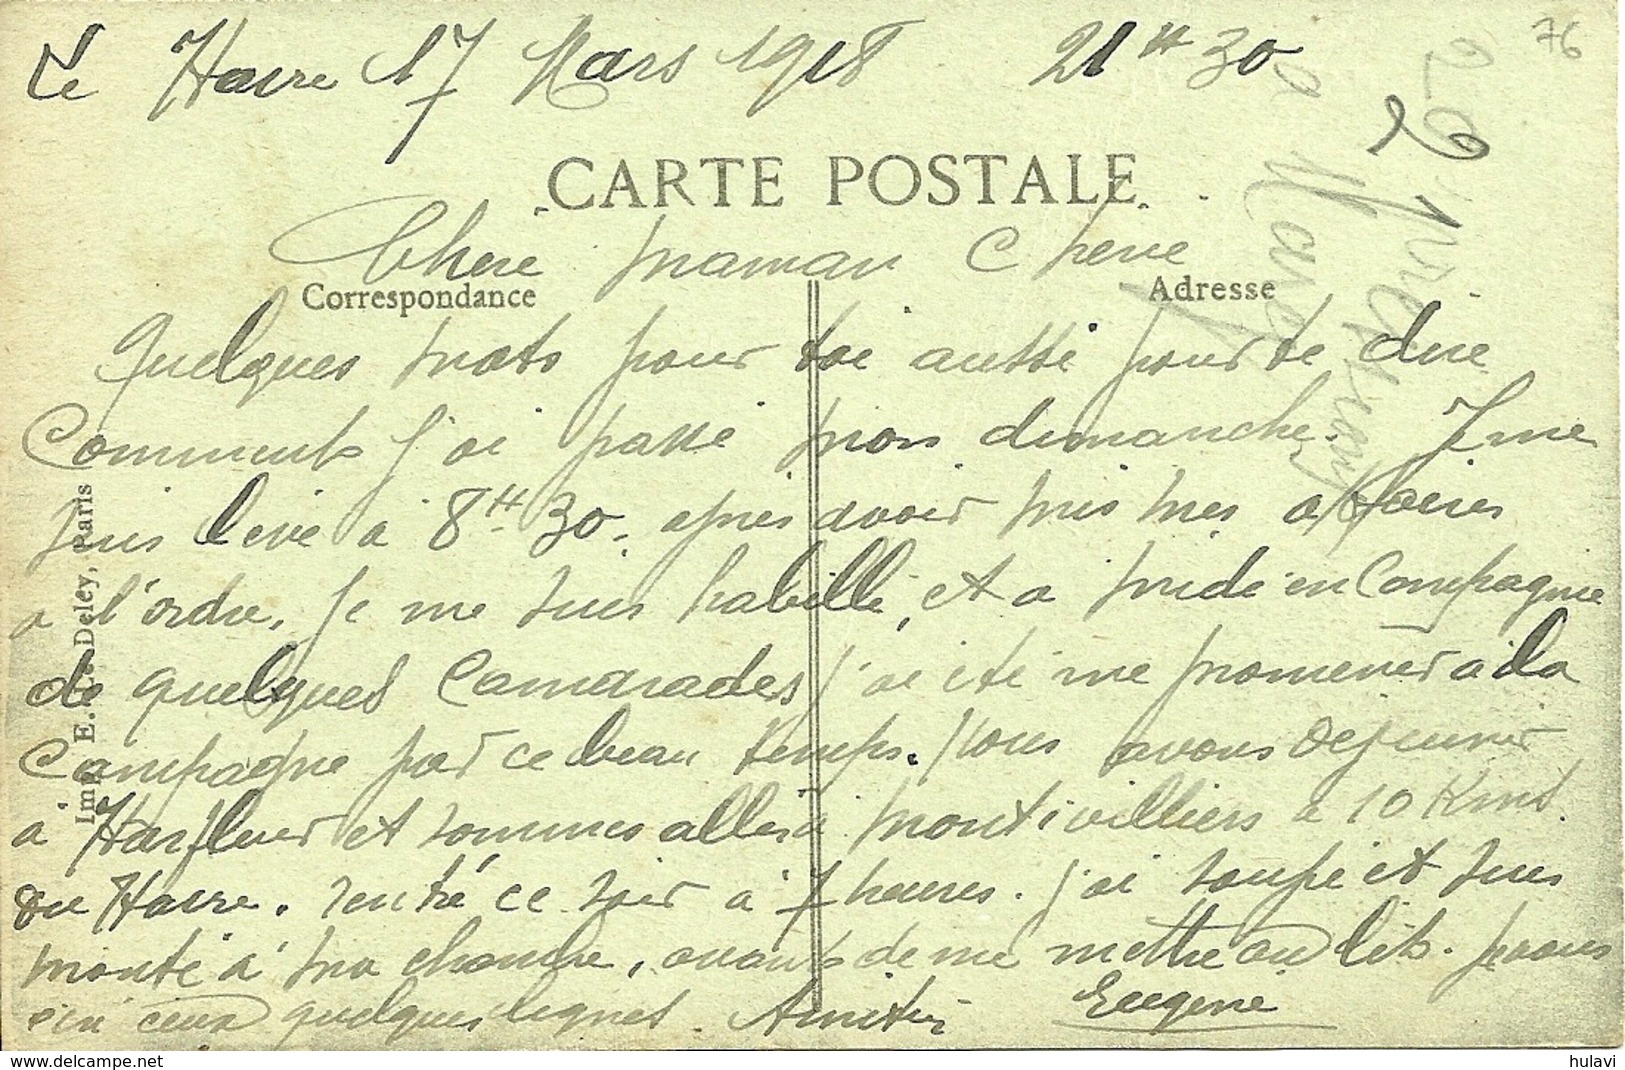 Le Havre 17 Mars 1918 21 H 30
76
CARTE POSTALE
Chere maman Cherie
Correspondance
Adresse
Quelques mots pour toi aussi pour te dire
Comment j'ai passé mon dimanche. Je me
suis levé à 8 H 30, après avoir mis mes affaires
a l'ordre, je me suis habillé, et a midi en Compagnie
de quelques Camarades j'ai été me promener à la
Campagne par ce beau temps. Nous avons dejeuner
a Harfleur et sommes allés à Montivilliers a 10 Kms
du Havre. rentré ce soir à 7 heures. j'ai soupé et suis
monté à ma chambre, avant de me mettre au lit. je vous
quelques lignes. Amitiés Eugène
Imp. E. Le Deley, Paris
delcampe.net
hulavi